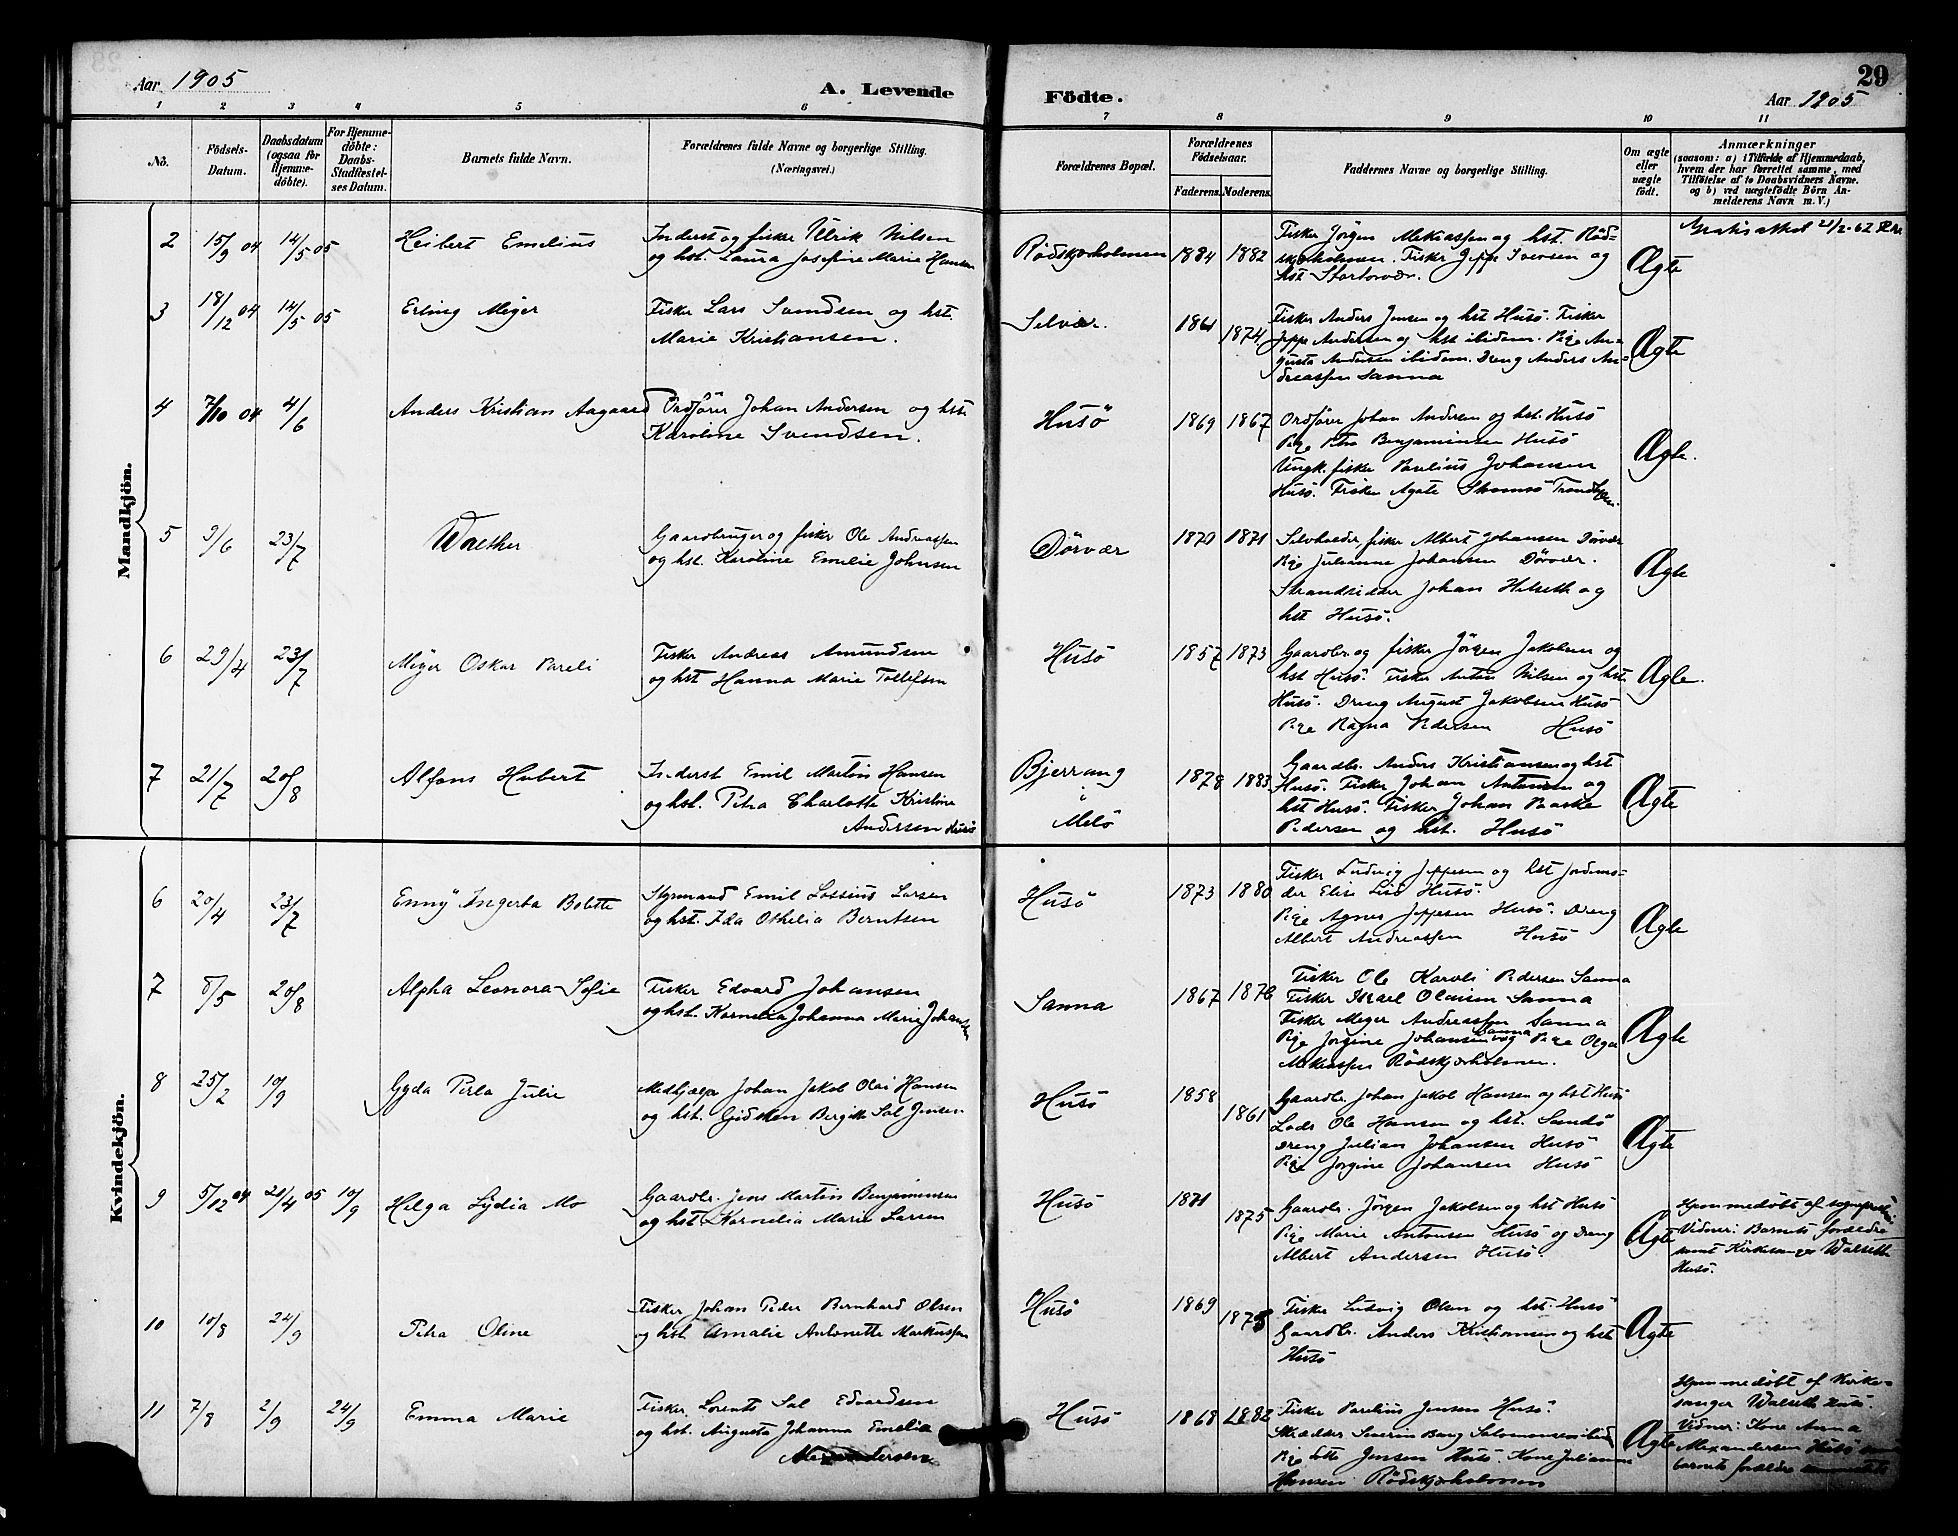 Aar 1905
A. Levende
Födte.
29
Aar 1905
1 2 3 4 5 6 7 8 9 10 11
No. Födsels-Datum. Daabsdatum (ogsaa for Hjemme-döbte). For Hjemme-döbte: Daabs-Stadfæstel-ses Datum. Barnets fulde Navn. Forældrenes fulde Navne og borgerlige Stilling. (Næringsvei.) Forældrenes Bopæl. Forældrenes Födselsaar. Faderens. Moderens. Faddernes Navne og borgerlige Stilling. Om ægte eller uægte födt. Anmærkninger
(saasom: a) i Tilfælde af Hjemmedaab,
hvem der har forrettet samme, med
Tilföielse af to Daabsvidners Navne.
og b) ved uægtefödte Börn An-
melderens Navn m. V.)
Mandkjön.
2 15/9 04 14/5 05 Leibert Emelius
Inderst og fisker Ulrik Nilsen
og hst. Laura Josefine Marie Hansen
Rødskjærholmen 1884 1882
Fisker Jörgen Mekiassen og hst. Röd-
skjærholmen. Fisker Jeppe Iversen og
hst
Ægte
21/2-62
3 18/12 04 14/5 05 Erling Meyer
Fisker Lars Svendsen og hst.
Marie Kristiansen.
Selvær. 1861 1874
Fisker Anders Jensen og hst Husö. Fisker
Jeppe Andersen og hst ibidem. Pige Au-
gusta Andersen ibidem. Dreng Anders An-
dreassen Sanna
Ægte
4 7/10 04 4/6 Anders Kristian Aagaard
Ordförer Johan Andersen og hst
Karoline Svendsen.
Husö 1869 1867
Ordförer Johan Andersen og hst. Husö
Pige Petra Benjaminsen Husö
Ungk. fisker Paulius Johansen
Husö. Fisker Agate
Ægte.
5 3/6 23/7 Walther
Gaardbruger og fisker Ole Andreassen
og hst. Karoline Emelie Johnsen
Dörvær 1870 1871
Selveier, fisker Albert Johansen Dörvær
Pige Julianne Johansen Dörvær.
Strandsidder Johan Hilseth og
hst Husö.
Ægte
6 29/4 23/7 Meyer Oskar Pareli
Fisker Andreas Amundsen
og hst Hanna Marie Tollefsen
Husö 1857 1873
Gaardbr. og fisker Jörgen Jakobsen og
hst Husö. Fisker Anton Nilsen og hst.
Husö. Dreng August Jakobsen Husö
Pige Ragna Pedersen Husö
Ægte.
7 21/7 20/8 Alfons Hubert
Inderst Emil Martin Hansen
og hst. Petra Charlotte Kristine
Andersen Husö
Bjerrang
i
Melö
1878 1883
Gaardbr. Anders Kristiansen og hst
Husö. Fisker Johan Antonsen og
hst Husö. Fisker Johan
Pedersen og hst. Husö
Ægte
Kvindekjön.
6 20/4 23/7 Enny Ingerta Bolette
Styrmand Emil Lossius Larsen
og hst. Ida Othelia Berntsen
Husö 1873 1880
Fisker Ludvig Jeppesen og hst Jordmo-
der Elise Lind Husö.
Pige Agnes Jeppesen Husö. Dreng
Albert Andreassen Husö
Ægte
7 8/5 20/8 Alpha Leonora Sofie
Fisker Edvard Johansen
og hst. Kornelia Johanna Marie Johansen
Sanna 1867 1876
Fisker Ole Karoli Pedersen Sanna
Fisker Israel Olaisen Sanna
Fisker Meyer Andreassen Sanna
Pige Jorgine Johansen Sanna og Pige Olga
Mekiassen Rödskjærholmen.
Ægte
8 25/2 10/9 Gyda Perla Julie
Medhjælper Johan Jakob Olai Hansen
og hst. Gidsken Bergitte Sal Jensen
Husö 1858 1861
Gaardbr. Johan Jakob Hansen og hst Husö
Lods Ole Hansen og hst. Sandö
Dreng Julian Johansen Husö
Pige Jorgine Johansen Husö
Ægte
9 5/12 04 20/4 05 10/9 Helga Lydia Mo
Gaardbr. Jens Martin Benjaminsen
og hst Kornelia Marie Larsen
Husö 1871 1875
Gaardbr. Jörgen Jakobsen og hst Husö
Pige Marie Antonsen Husö og Dreng
Albert Andersen Husö.
Ægte
Hjemmedöbt af sognepræsten
Vidner: Barnets forældre
samt Kirkesanger Walseth
Husö.
10 10/8 24/9 Petra Oline
Fisker Johan Peder Bernhard Olsen
og hst. Amalie Antonette Markussen
Husö 1869 1873
Fisker Ludvig Olsen og hst. Husö
Gaardbr. Anders Kristiansen og hst
Husö
Ægte
11 7/8 2/9 24/9 Emma Marie
Fisker Lorents Sal Edvardsen
og hst. Augusta Johanna Emelia
Alexandersen
Husö 1868 1882
Fisker Paulius Jensen Husö.
Skrædder Severin Berg Salomonsen ibid
Pige Jensen Husö. Kone Julianne
Hansen Rödskjærholmen
Ægte
Hjemmedöbt af Kirke-
sanger Walseth Husö.
Vidner: Kone Anna
Alexandersen Husö
barnets forældre